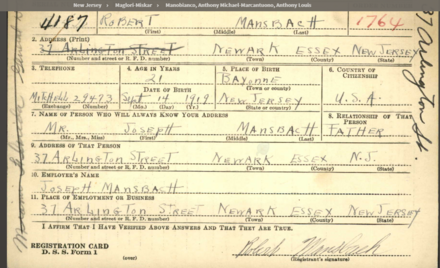 New Jersey › Maglori-Miskar › Manobianco, Anthony Michael-Marcantuono, Anthony Louis
4187 ROBERT MANSBACH 1764
(First) (Middle) (Last)
2. ADDRESS (Print)
37 ARLINGTON STREET NEWARK ESSEX NEW JERSEY
(Number and street or R. F. D. number) (Town) (County) (State)
3. TELEPHONE 4. AGE IN YEARS 5. PLACE OF BIRTH 6. COUNTRY OF CITIZENSHIP
21 BAYONNE
DATE OF BIRTH (Town or county)
29473 SEPT 14 1919 NEW JERSEY U.S.A.
(Exchange) (Number) (Mo.) (Day) (Yr.) (State or country)
7. NAME OF PERSON WHO WILL ALWAYS KNOW YOUR ADDRESS 8. RELATIONSHIP OF THAT PERSON
MR. JOSEPH MANSBACH FATHER
(Mr., Mrs., Miss) (First) (Middle) (Last)
9. ADDRESS OF THAT PERSON
37 ARLINGTON STREET NEWARK ESSEX N.J.
(Number and street or R. F. D. number) (Town) (County) (State)
10. EMPLOYER'S NAME
JOSEPH MANSBACH
11. PLACE OF EMPLOYMENT OR BUSINESS
37 ARLINGTON STREET NEWARK ESSEX NEW JERSEY
(Number and street or R. F. D. number) (Town) (County) (State)
I AFFIRM THAT I HAVE VERIFIED ABOVE ANSWERS AND THAT THEY ARE TRUE.
REGISTRATION CARD
D. S. S. Form 1 (over) (Registrant's signature)
Robert Mansbach
37 Arlington St.